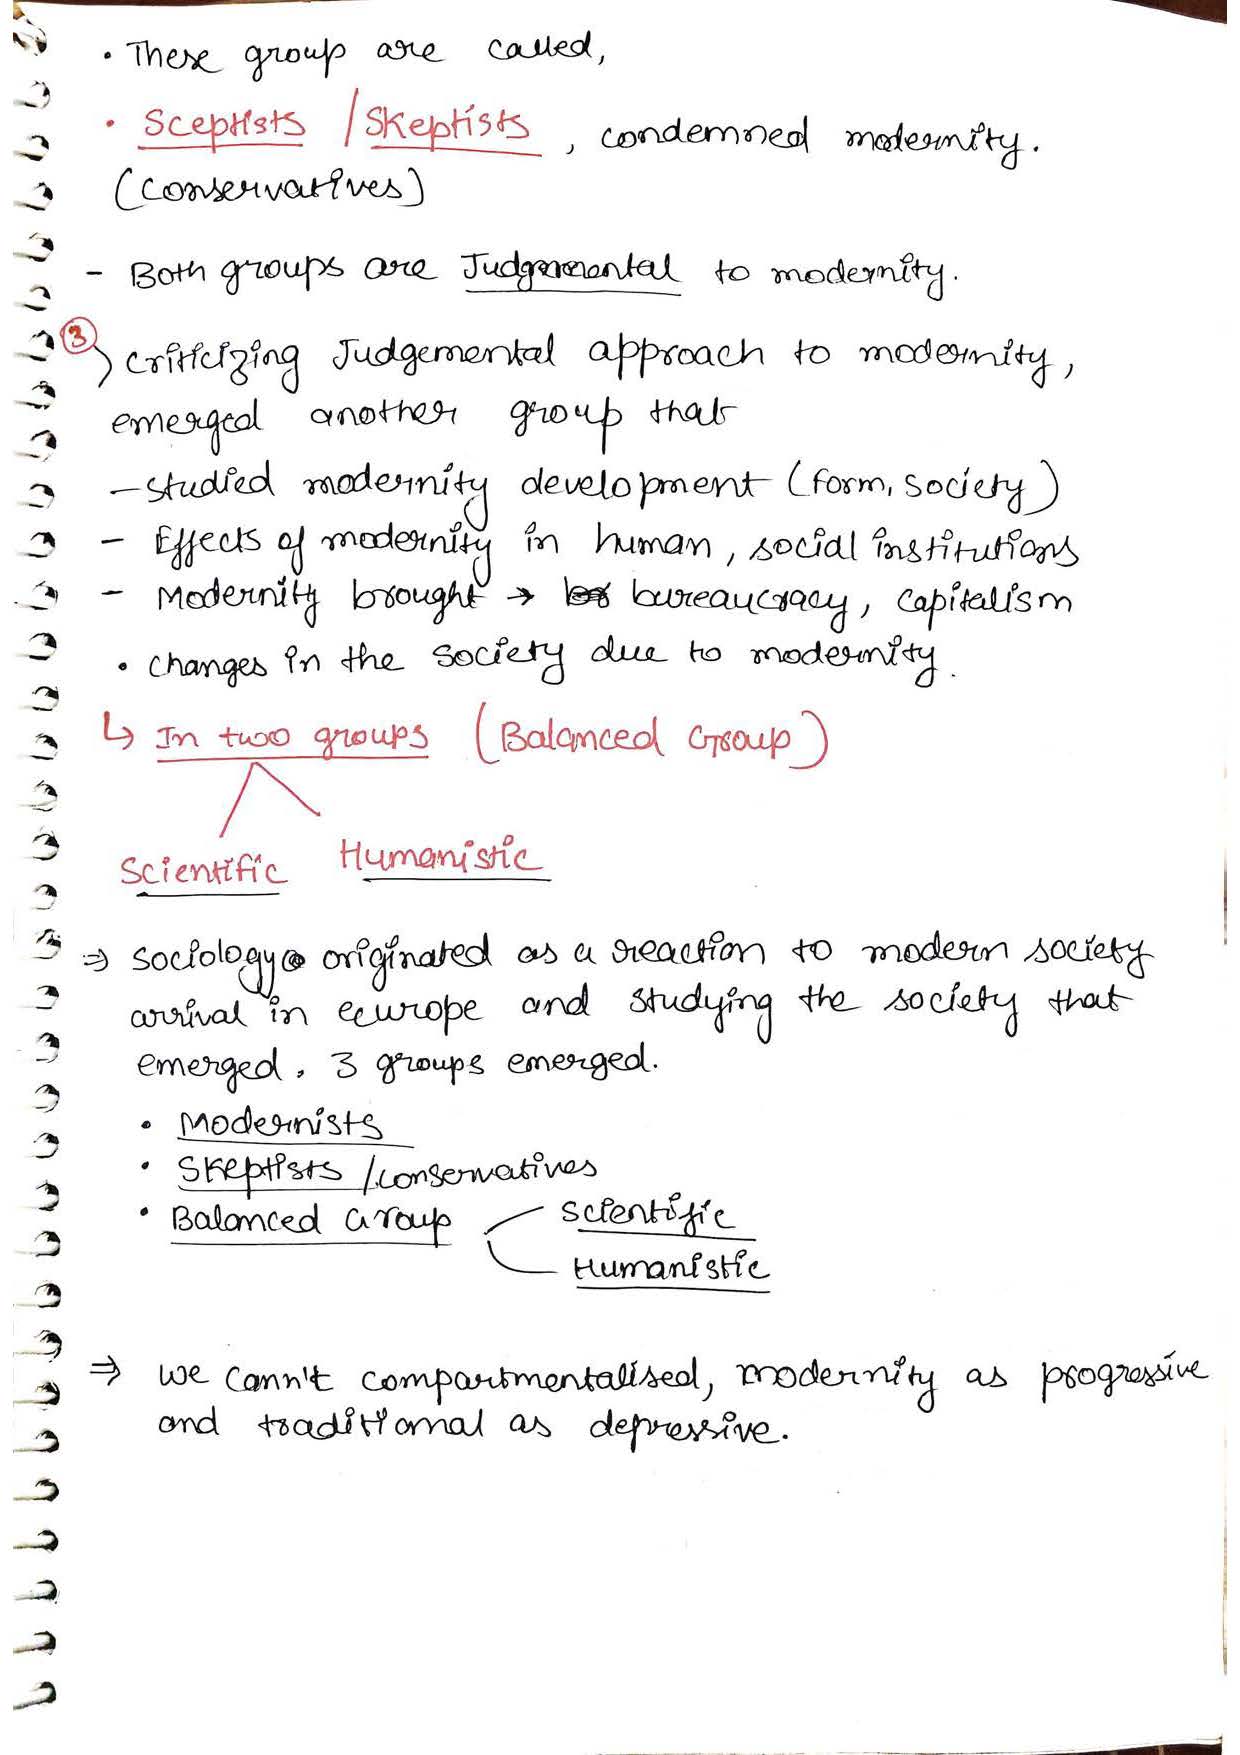 • These group are called,
• Sceptists / Skeptists, condemned modernity.
(Conservatives)
- Both groups are Judgemental to modernity.
③ Criticizing Judgemental approach to modernity,
emerged another group that
- Studied modernity development (form, society)
- Effects of modernity in human, social institutions
- Modernity brought → bureaucracy, capitalism
• changes in the society due to modernity.
↳ In two groups (Balanced Group)
Scientific Humanistic
⇒ Sociology originated as a reaction to modern society
arrival in europe and studying the society that
emerged. 3 groups emerged.
• Modernists
• Skeptists / conservatives
• Balanced Group Scientific
Humanistic
⇒ we cann't compartmentalised, modernity as progressive
and traditional as depressive.